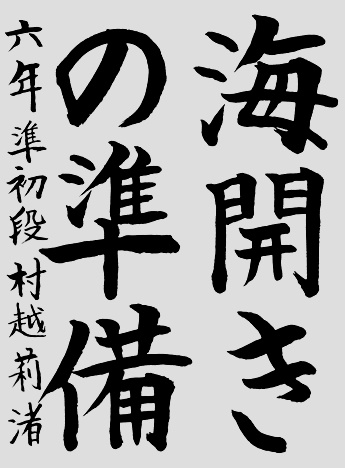 海開き
の準備
六年 準初段 村越莉渚